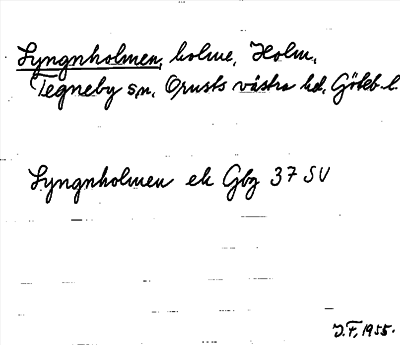 Lyngnholmen, holme, Holm,
Tegneby sn, Orusts västra hd, Göteb. l.
Lyngnholmen ek Gbg 37 SV
J.F. 1955.